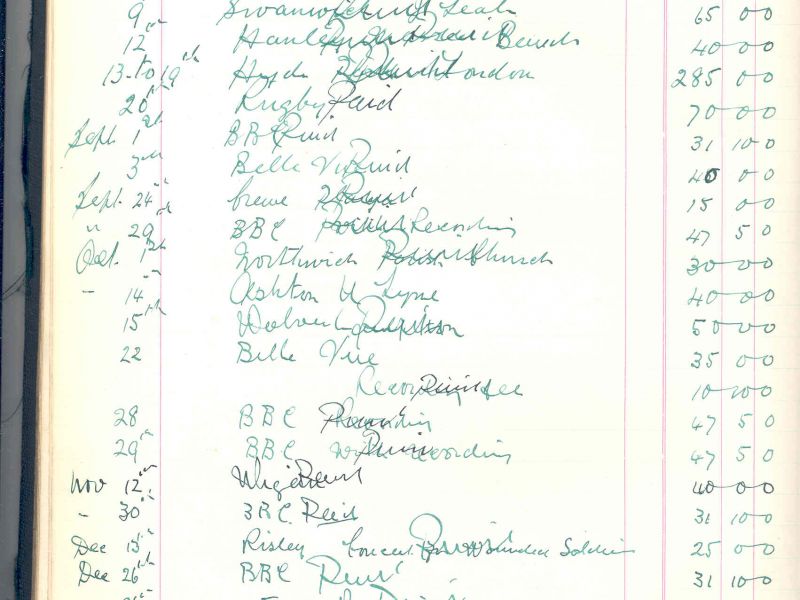 9th 65 0 0
12 Bands 40 0 0
13th to 19th Hyde London 285 0 0
20th Rugby Paid 70 0 0
Sept. 1st BBC Paid 31 10 0
3rd Belle Vue Paid 40 0 0
Sept. 24th Crewe 15 0 0
" 29th BBC Recording 47 5 0
Oct. Northwich Parish Church 30 0 0
14th Ashton U Lyne 40 0 0
15th 50 0 0
22 Belle Vue 35 0 0
Recording Fee 10 0 0
28 BBC Recording 47 5 0
29th BBC Recording 47 5 0
Nov 12th Wigan 40 0 0
" 30th BBC Paid 31 10 0
Dec 15th Risley Concert Wounded Soldiers 25 0 0
Dec 26th BBC Paid 31 10 0